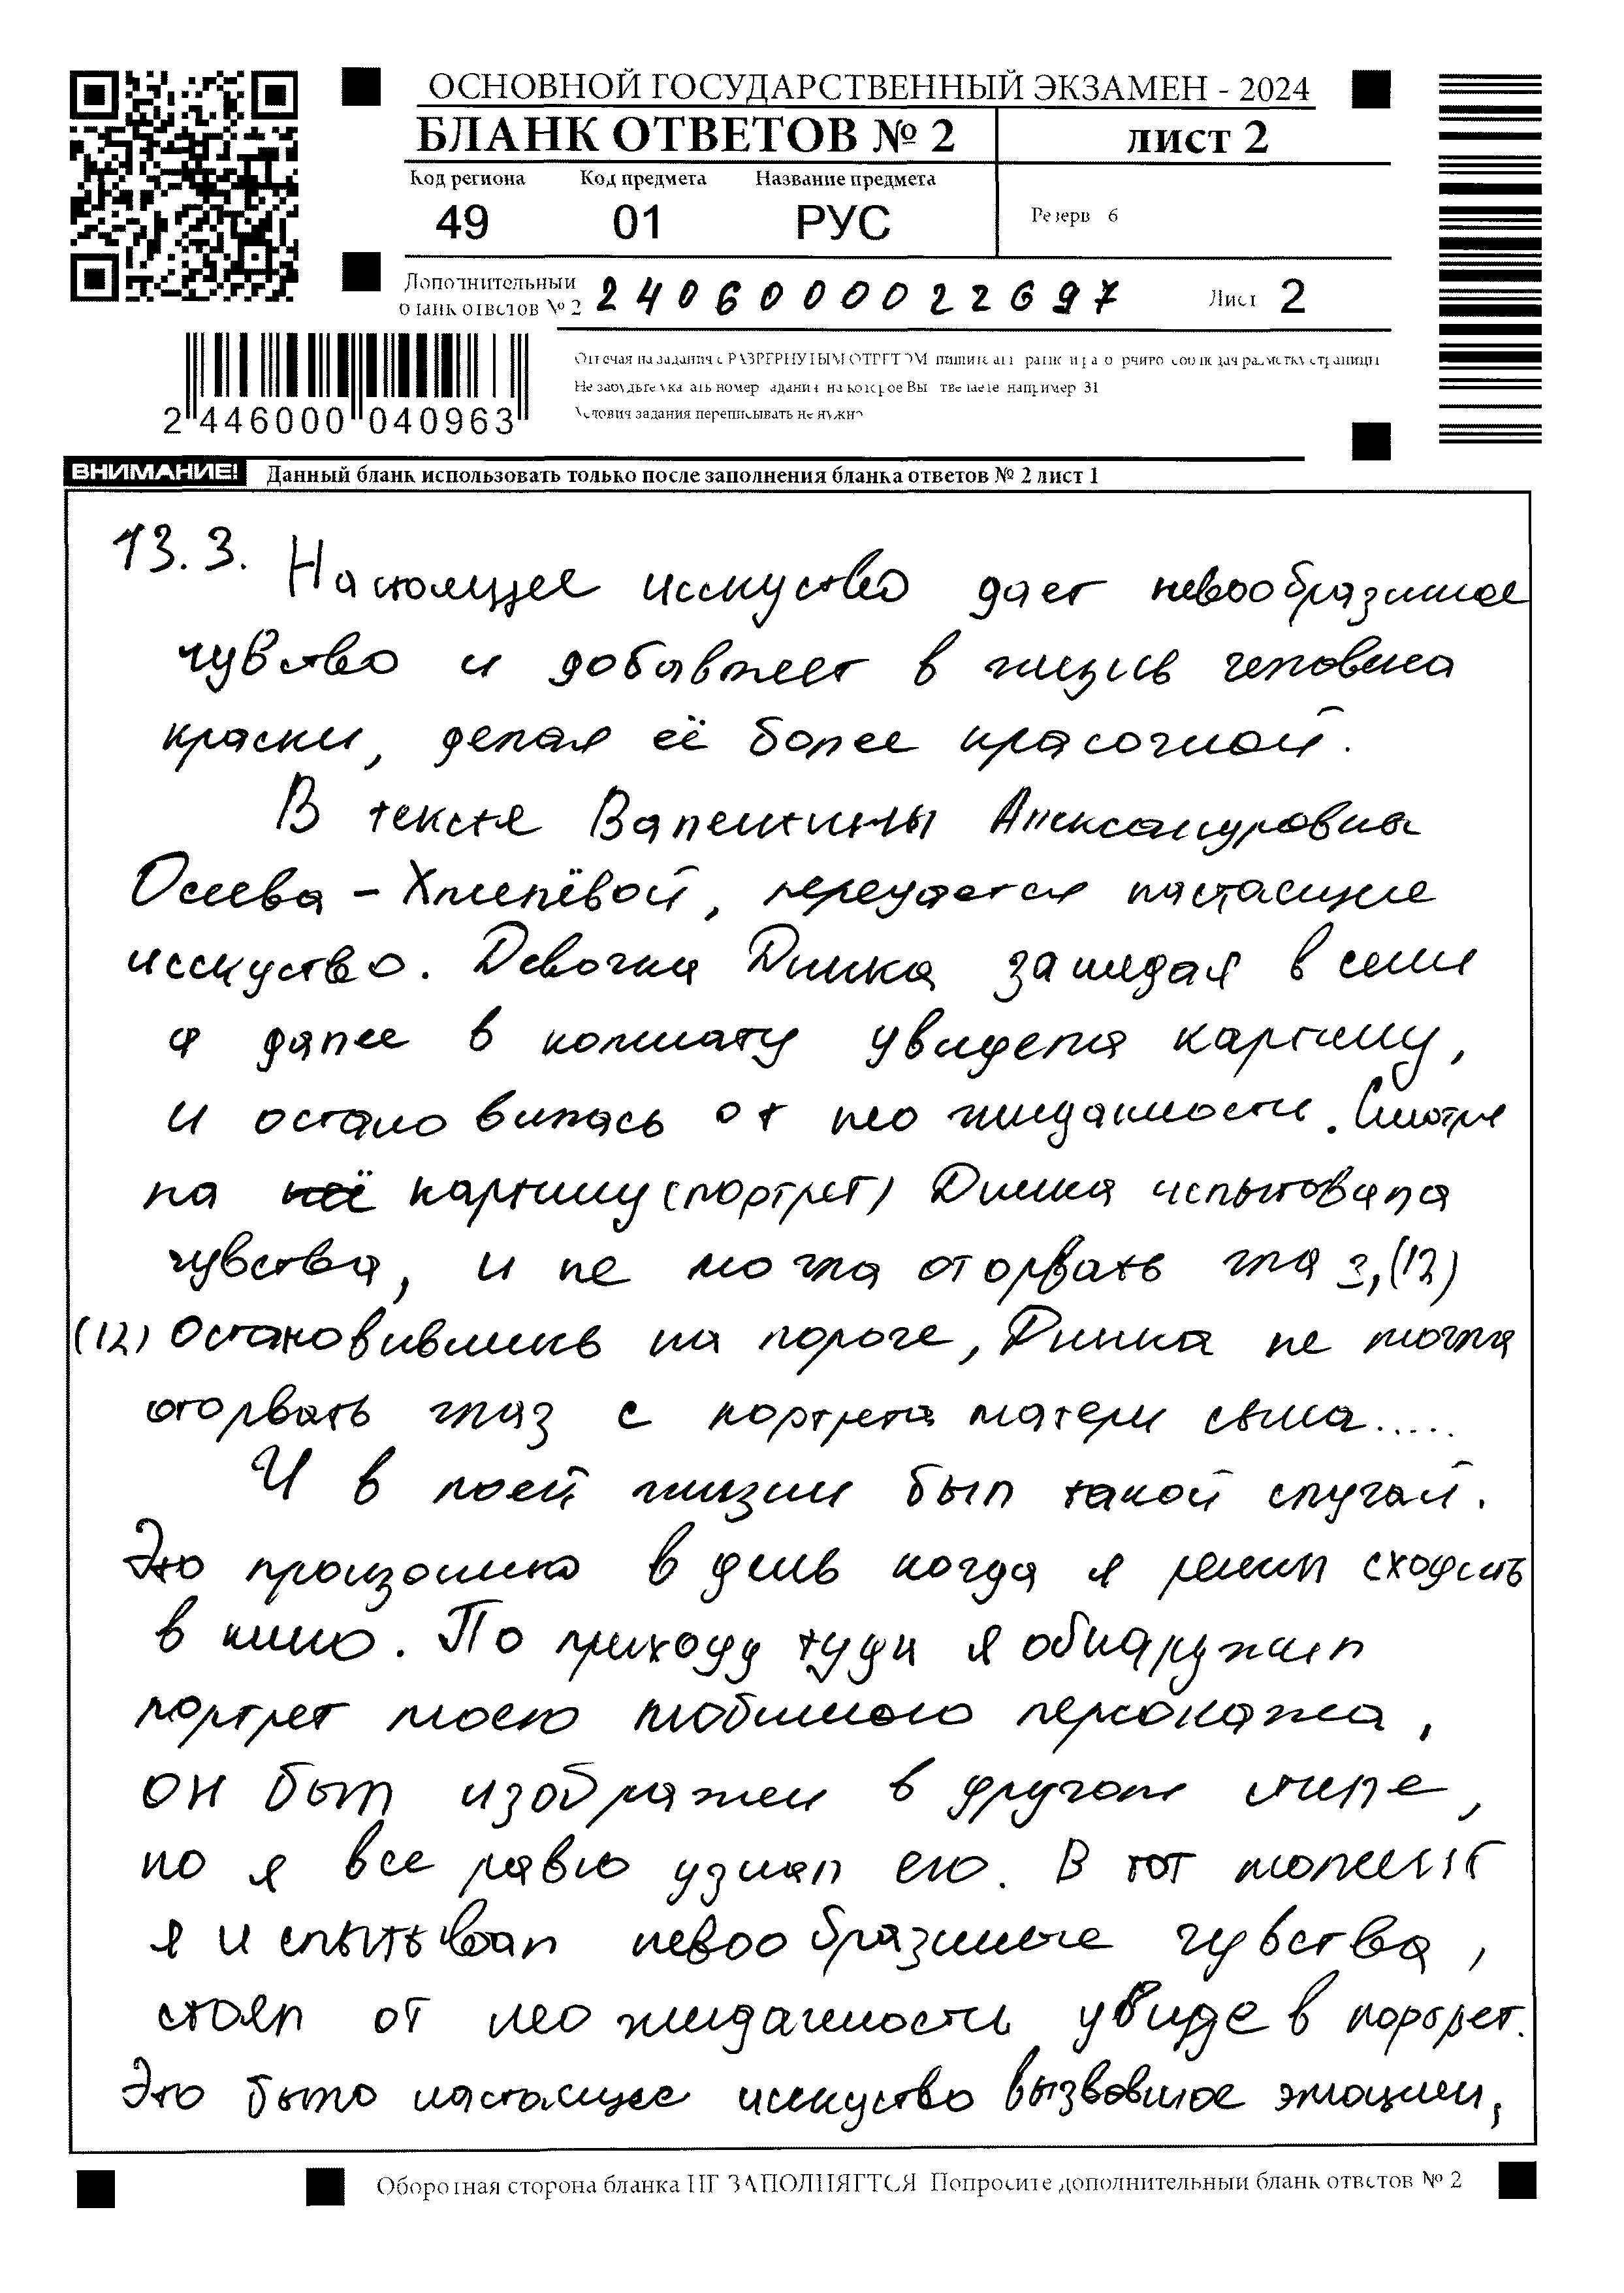 ОСНОВНОЙ ГОСУДАРСТВЕННЫЙ ЭКЗАМЕН - 2024
БЛАНК ОТВЕТОВ № 2 лист 2
Код региона Код предмета Название предмета
49 01 РУС
Резерв 6
Дополнительный
бланк ответов № 2 2406000022697 Лист 2
2 446000 040963
Не забудьте указать номер задания на которое Вы отвечаете например 31
Условия задания переписывать не нужно
ВНИМАНИЕ! Данный бланк использовать только после заполнения бланка ответов № 2 лист 1
13.3. Настоящее исскуство дает невообразимое
чувство и добавляет в жизнь человека
краски, делая её более красочной.
В тексте Валентины Александровны
Осеева-Хмелёвой, передается настаящие
исскуство. Девочка Динка зашедая в сени
а далее в комнату увидела картину,
и остановилась от неожиданности. Смотря
на неё картину (портрет) Динка испытовала
чувства, и не могла оторвать глаз, (12)
(12) Остановившись на пороге, Динка не могла
оторвать глаз с портрета матери сына.....
И в моей жизни был такой случай.
Это произошло в день когда я решил сходить
в кино. По приходу туда я обнаружил
портрет моего любимого персонажа,
он был изображен в другом стиле,
но я все равно узнал его. В тот момент
я испытывал невообразимые чувства,
стоял от неожиданности увидев портрет.
Это было настоящее исскуство вызвовшое эмоции,
Оборотная сторона бланка НЕ ЗАПОЛНЯЕТСЯ Попросите дополнительный бланк ответов № 2